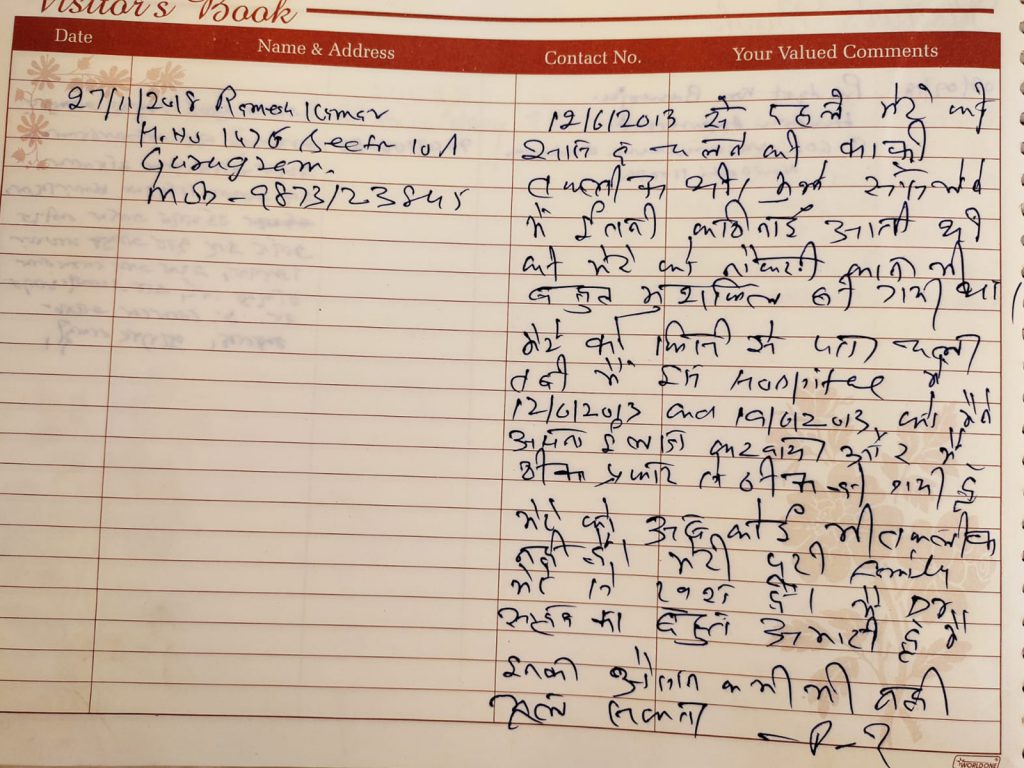 Visitor's Book
Date Name & Address Contact No. Your Valued Comments
27/11/2018 Ramesh Kumar
H.No 1476 Sector 10A
Gurugram.
Mob - 9873123845
12/6/2013 से पहले मेरे को
की काफी
तकलीफ थी। मुझे
में इतनी कठिनाई आती थी
की मेरे को नौकरी जाना भी
बहुत मुशकिल हो गया था
मेरे को किसी से पता चला
तभी मैंने इस Hospital में
12/6/2013 and 19/6/2013 को मैंने
अपना ईलाज करवाया और मैं
ठीक प्रकार से ठीक हो गया हूँ
मेरे को अब कोई भी तकलीफ
नहीं है। मेरी पूरी Family
मेरे से खुश है। मैं Dr
साहब का बहुत अभारी हूँ मैं
इनको कभी भी नहीं
भूल सकता
WORLDONE